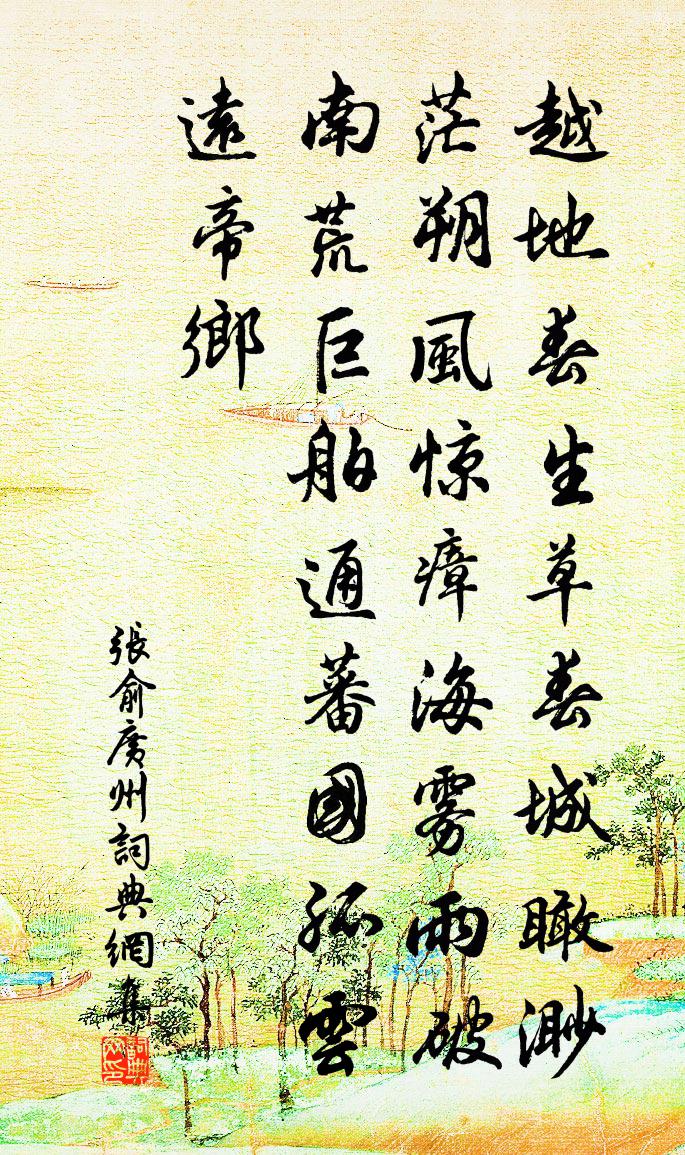 越地春生草春城瞰渺
茫朔風惊瘴海雾雨破
南荒巨舶通蕃國孤雲
遠帝鄉
張俞廣州詞典網集